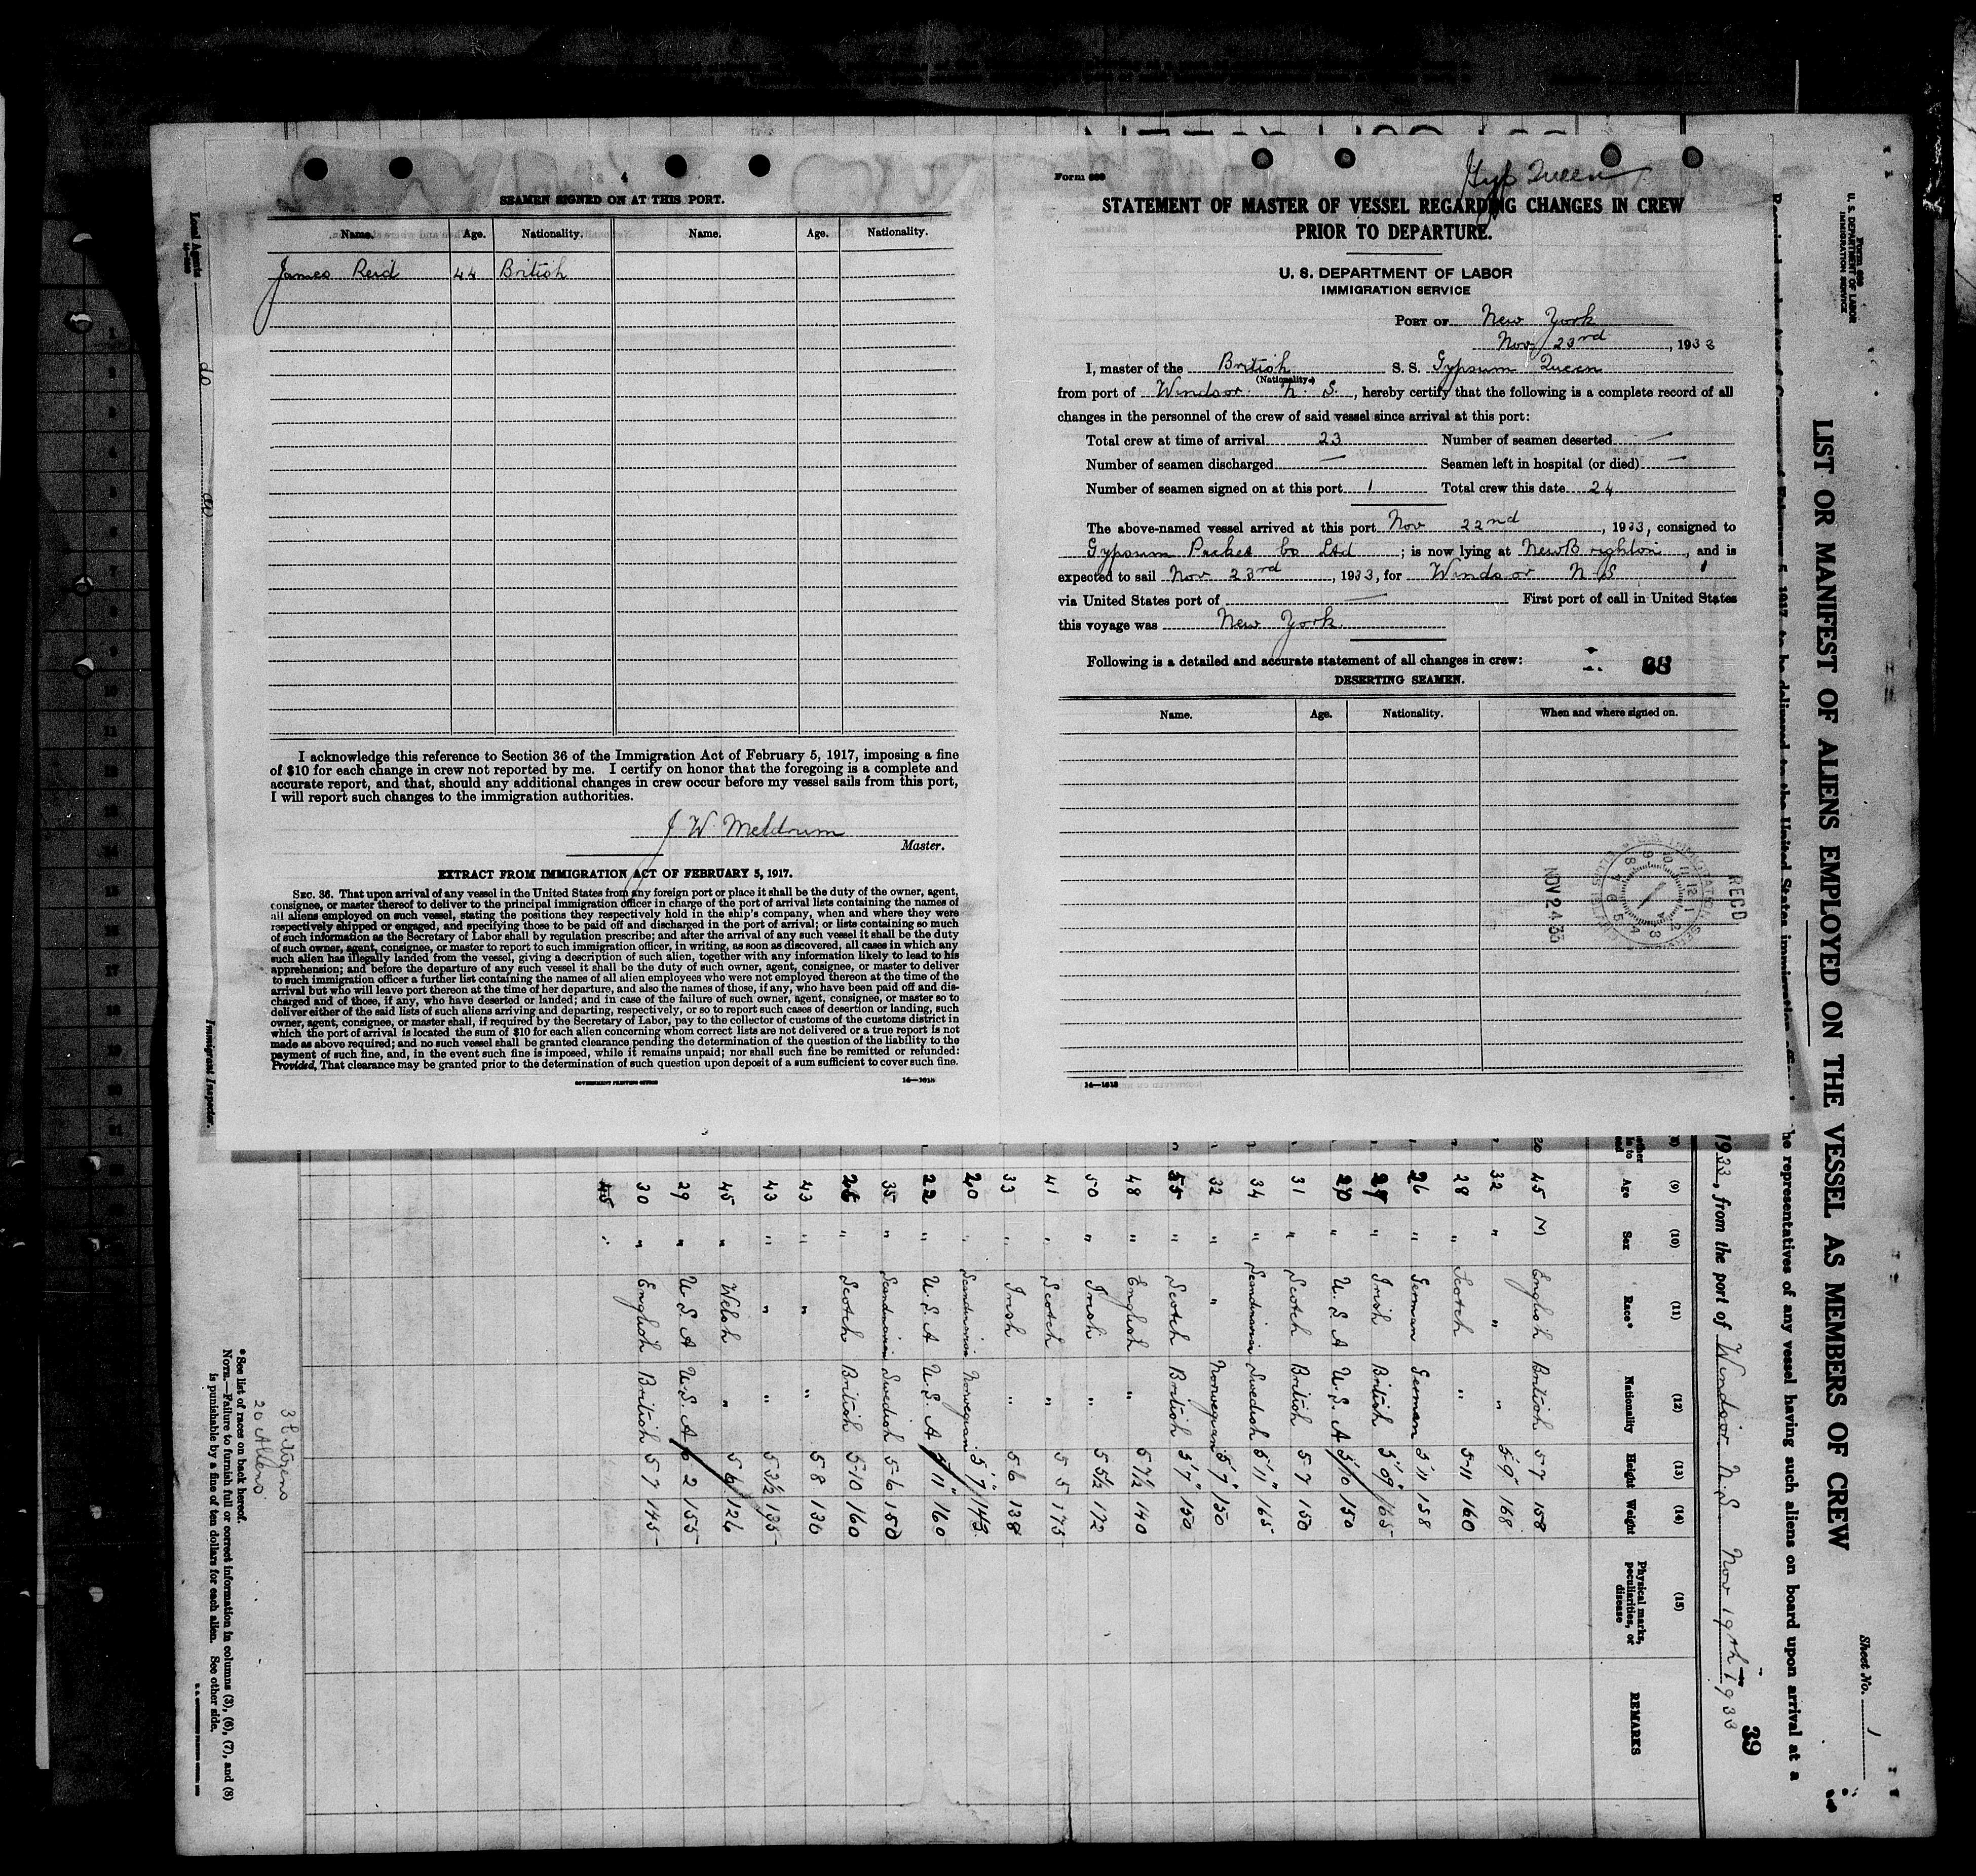 4
SEAMEN SIGNED ON AT THIS PORT.
Name. Age. Nationality. Name. Age. Nationality.
James Reid 44 British
I acknowledge this reference to Section 36 of the Immigration Act of February 5, 1917, imposing a fine
of $10 for each change in crew not reported by me. I certify on honor that the foregoing is a complete and
accurate report, and that, should any additional changes in crew occur before my vessel sails from this port,
I will report such changes to the immigration authorities.
J W Meldrum
Master.
EXTRACT FROM IMMIGRATION ACT OF FEBRUARY 5, 1917.
SEC. 36. That upon arrival of any vessel in the United States from any foreign port or place it shall be the duty of the owner, agent,
consignee, or master thereof to deliver to the principal immigration officer in charge of the port of arrival lists containing the names of
all aliens employed on such vessel, stating the positions they respectively hold in the ship's company, when and where they were
respectively shipped or engaged, and specifying those to be paid off and discharged in the port of arrival; or lists containing so much
of such information as the Secretary of Labor shall by regulation prescribe; and after the arrival of any such vessel it shall be the duty
of such owner, agent, consignee, or master to report to such immigration officer, in writing, as soon as discovered, all cases in which any
such alien has illegally landed from the vessel, giving a description of such alien, together with any information likely to lead to his
apprehension; and before the departure of any such vessel it shall be the duty of such owner, agent, consignee, or master to deliver
to such immigration officer a further list containing the names of all alien employees who were not employed thereon at the time of the
arrival but who will leave port thereon at the time of her departure, and also the names of those, if any, who have been paid off and dis-
charged and of those, if any, who have deserted or landed; and in case of the failure of such owner, agent, consignee, or master so to
deliver either of the said lists of such aliens arriving and departing, respectively, or so to report such cases of desertion or landing, such
owner, agent, consignee, or master shall, if required by the Secretary of Labor, pay to the collector of customs of the customs district in
which the port of arrival is located the sum of $10 for each alien concerning whom correct lists are not delivered or a true report is not
made as above required; and no such vessel shall be granted clearance pending the determination of the question of the liability to the
payment of such fine, and, in the event such fine is imposed, while it remains unpaid; nor shall such fine be remitted or refunded:
Provided, That clearance may be granted prior to the determination of such question upon deposit of a sum sufficient to cover such fine.
GOVERNMENT PRINTING OFFICE 14—1318
Form 689
Gyp Queen
STATEMENT OF MASTER OF VESSEL REGARDING CHANGES IN CREW
PRIOR TO DEPARTURE.
U. S. DEPARTMENT OF LABOR
IMMIGRATION SERVICE
PORT OF New York
Nov 23rd, 1933
I, master of the British S. S. Gypsum Queen
(Nationality.)
from port of Windsor N. S., hereby certify that the following is a complete record of all
changes in the personnel of the crew of said vessel since arrival at this port:
Total crew at time of arrival 23 Number of seamen deserted —
Number of seamen discharged — Seamen left in hospital (or died) —
Number of seamen signed on at this port 1 Total crew this date 24
The above-named vessel arrived at this port Nov 22nd, 1933, consigned to
Gypsum Packet Co Ltd; is now lying at New Brighton, and is
expected to sail Nov 23rd, 1933, for Windsor N.S
via United States port of — First port of call in United States
this voyage was New York
Following is a detailed and accurate statement of all changes in crew:
DESERTING SEAMEN.
Name. Age. Nationality. When and where signed on.
RECD
NOV 24 33
14—1318
Form 689
U. S. DEPARTMENT OF LABOR
IMMIGRATION SERVICE
Sheet No. 1
LIST OR MANIFEST OF ALIENS EMPLOYED ON THE VESSEL AS MEMBERS OF CREW
he representatives of any vessel having such aliens on board upon arrival at a
39
1933, from the port of Windsor N.S. Nov 19th 1933
(9) (10) (11) (12) (13) (14) (15)
Age Sex Race* Nationality Height Weight Physical marks, peculiarities, or disease REMARKS
45 M English British 5 7 158
32 " " " 5'9" 168
28 " Scotch " 5-11 160
26 " German German 5'11 158
29 " Irish British 5'09" 165
20 " U.S.A U.S.A 5'10 150
31 " Scotch British 5 7 150
34 " Scandinavian Swedish 5'11" 165
32 " " Norwegian 5'7" 150
55 " Scotch British 5'7" 150
48 " English " 5 7½ 140
50 " Irish " 5 5½ 172
41 " Scotch " 5 5 175
33 " Irish " 5 6 138
20 " Scandinavian Norwegian 5'7" 143
22 " U.S.A U.S.A 5'11" 160
35 " Scandinavian Swedish 5-6 150
26 " Scotch British 5-10 160
43 " " " 5 8 136
43 " " " 5 3½ 135
45 " Welsh " 5 6 126
29 " U.S.A U.S.A 6 2 155
30 " English British 5 7 145
45
3 Citizens
20 Aliens
*See list of races on back hereof.
NOTE.—Failure to furnish full or correct information in columns (3), (6), (7), and (8)
is punishable by a fine of ten dollars for each alien. See other side.
Local Agents
do
Immigrant Inspector.